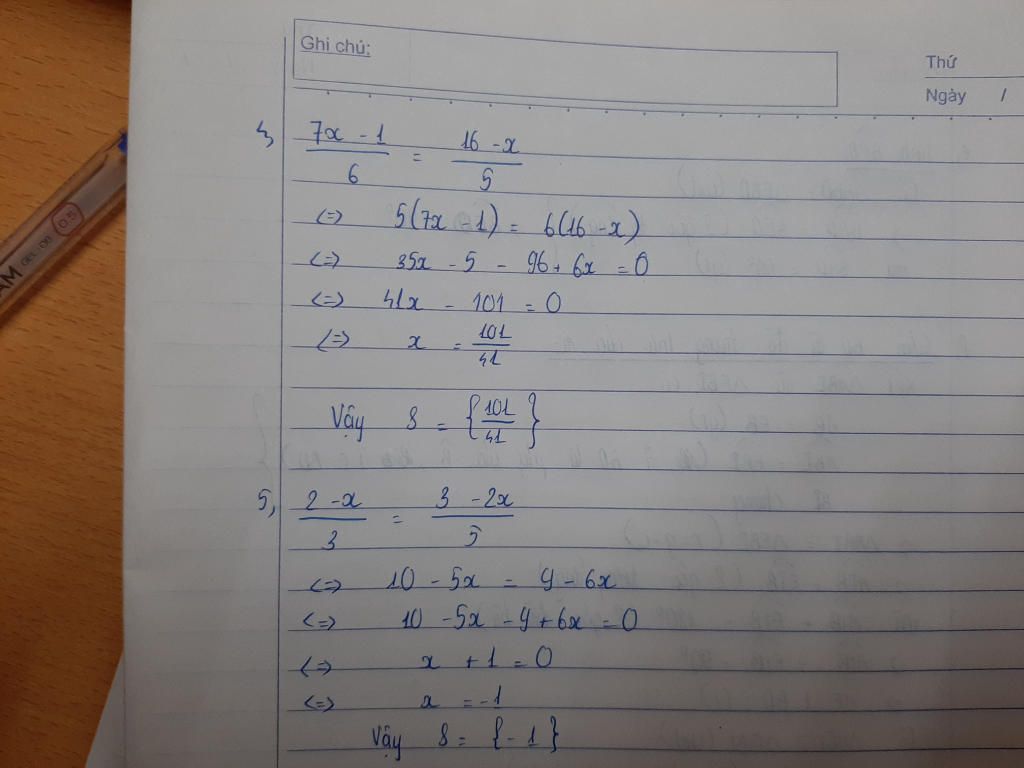 Ghi chú:
Thứ
Ngày /
4, (7x - 1)/6 = (16 - x)/5
<=> 5(7x - 1) = 6(16 - x)
<=> 35x - 5 - 96 + 6x = 0
<=> 41x - 101 = 0
<=> x = 101/41
Vậy S = {101/41}
5, (2 - x)/3 = (3 - 2x)/5
<=> 10 - 5x = 9 - 6x
<=> 10 - 5x - 9 + 6x = 0
<=> x + 1 = 0
<=> x = -1
Vậy S = {-1}
GEL-08 0.5